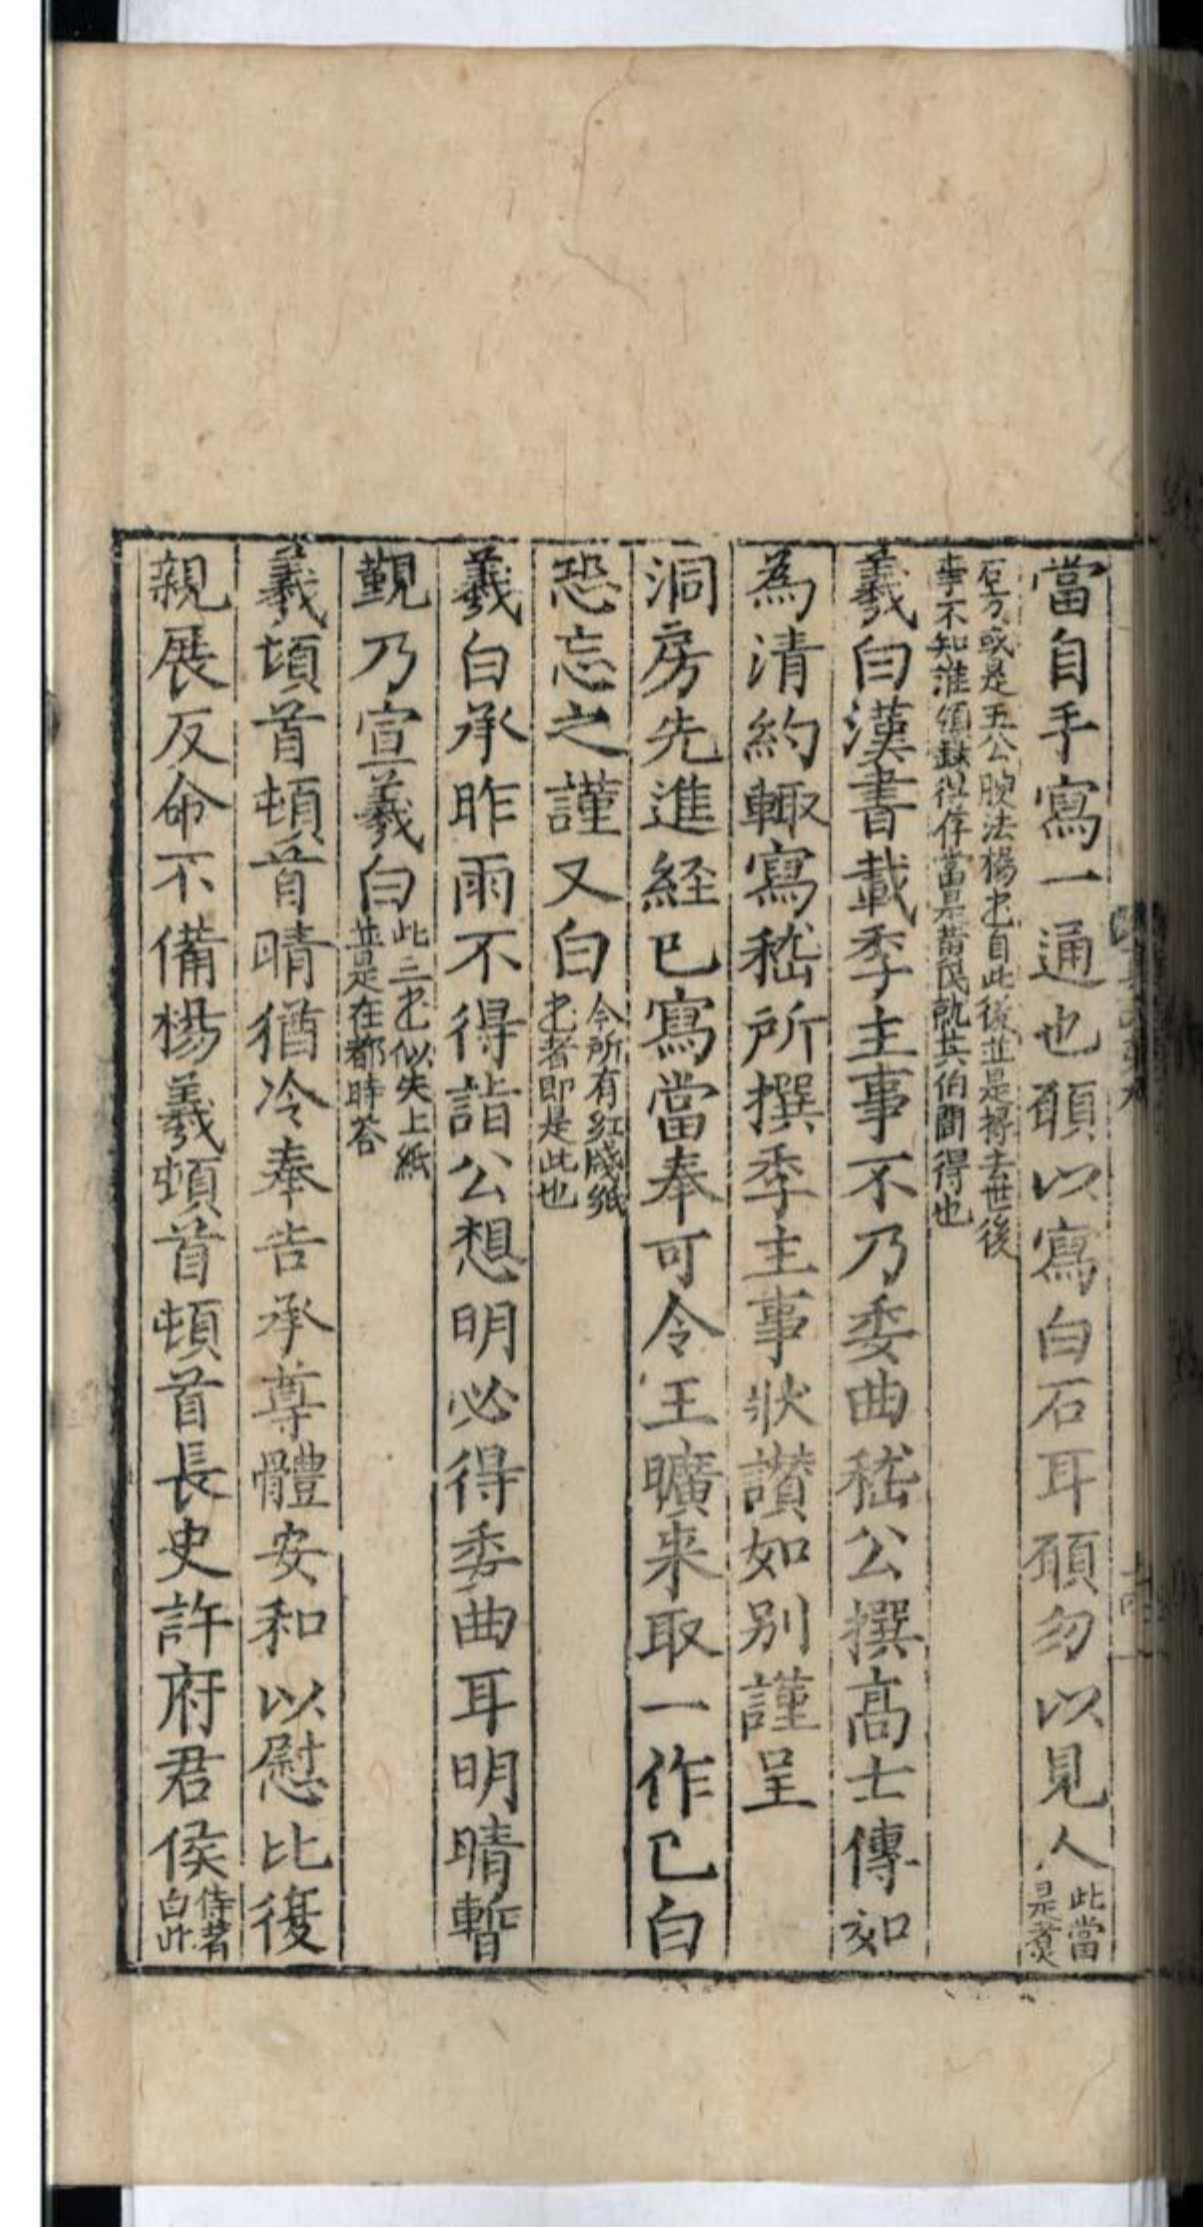 當自手寫一通也頋以寫白石耳頋勿以見人此當是煑
石方或是五公腴法楊书自此後並是掾去世後
事不知誰領録得存當是黄民就其伯間得也
羲白漢書載季主事不乃委曲嵇公撰髙士傳如
為清約輙寫嵇所撰季主事狀讃如别謹呈
洞房先進経已寫當奉可令王曠来取一作已白
恐忘之謹又白今所有紅牋紙书者即是此也
羲白承昨雨不得詣公想明必得委曲耳明晴暫
覲乃宣羲白此三书似失上紙並是在都時荅
羲頓首頓首晴猶冷奉告承尊體安和以慰比復
親展反命不備楊羲頓首頓首長史許府君侯侍者白此